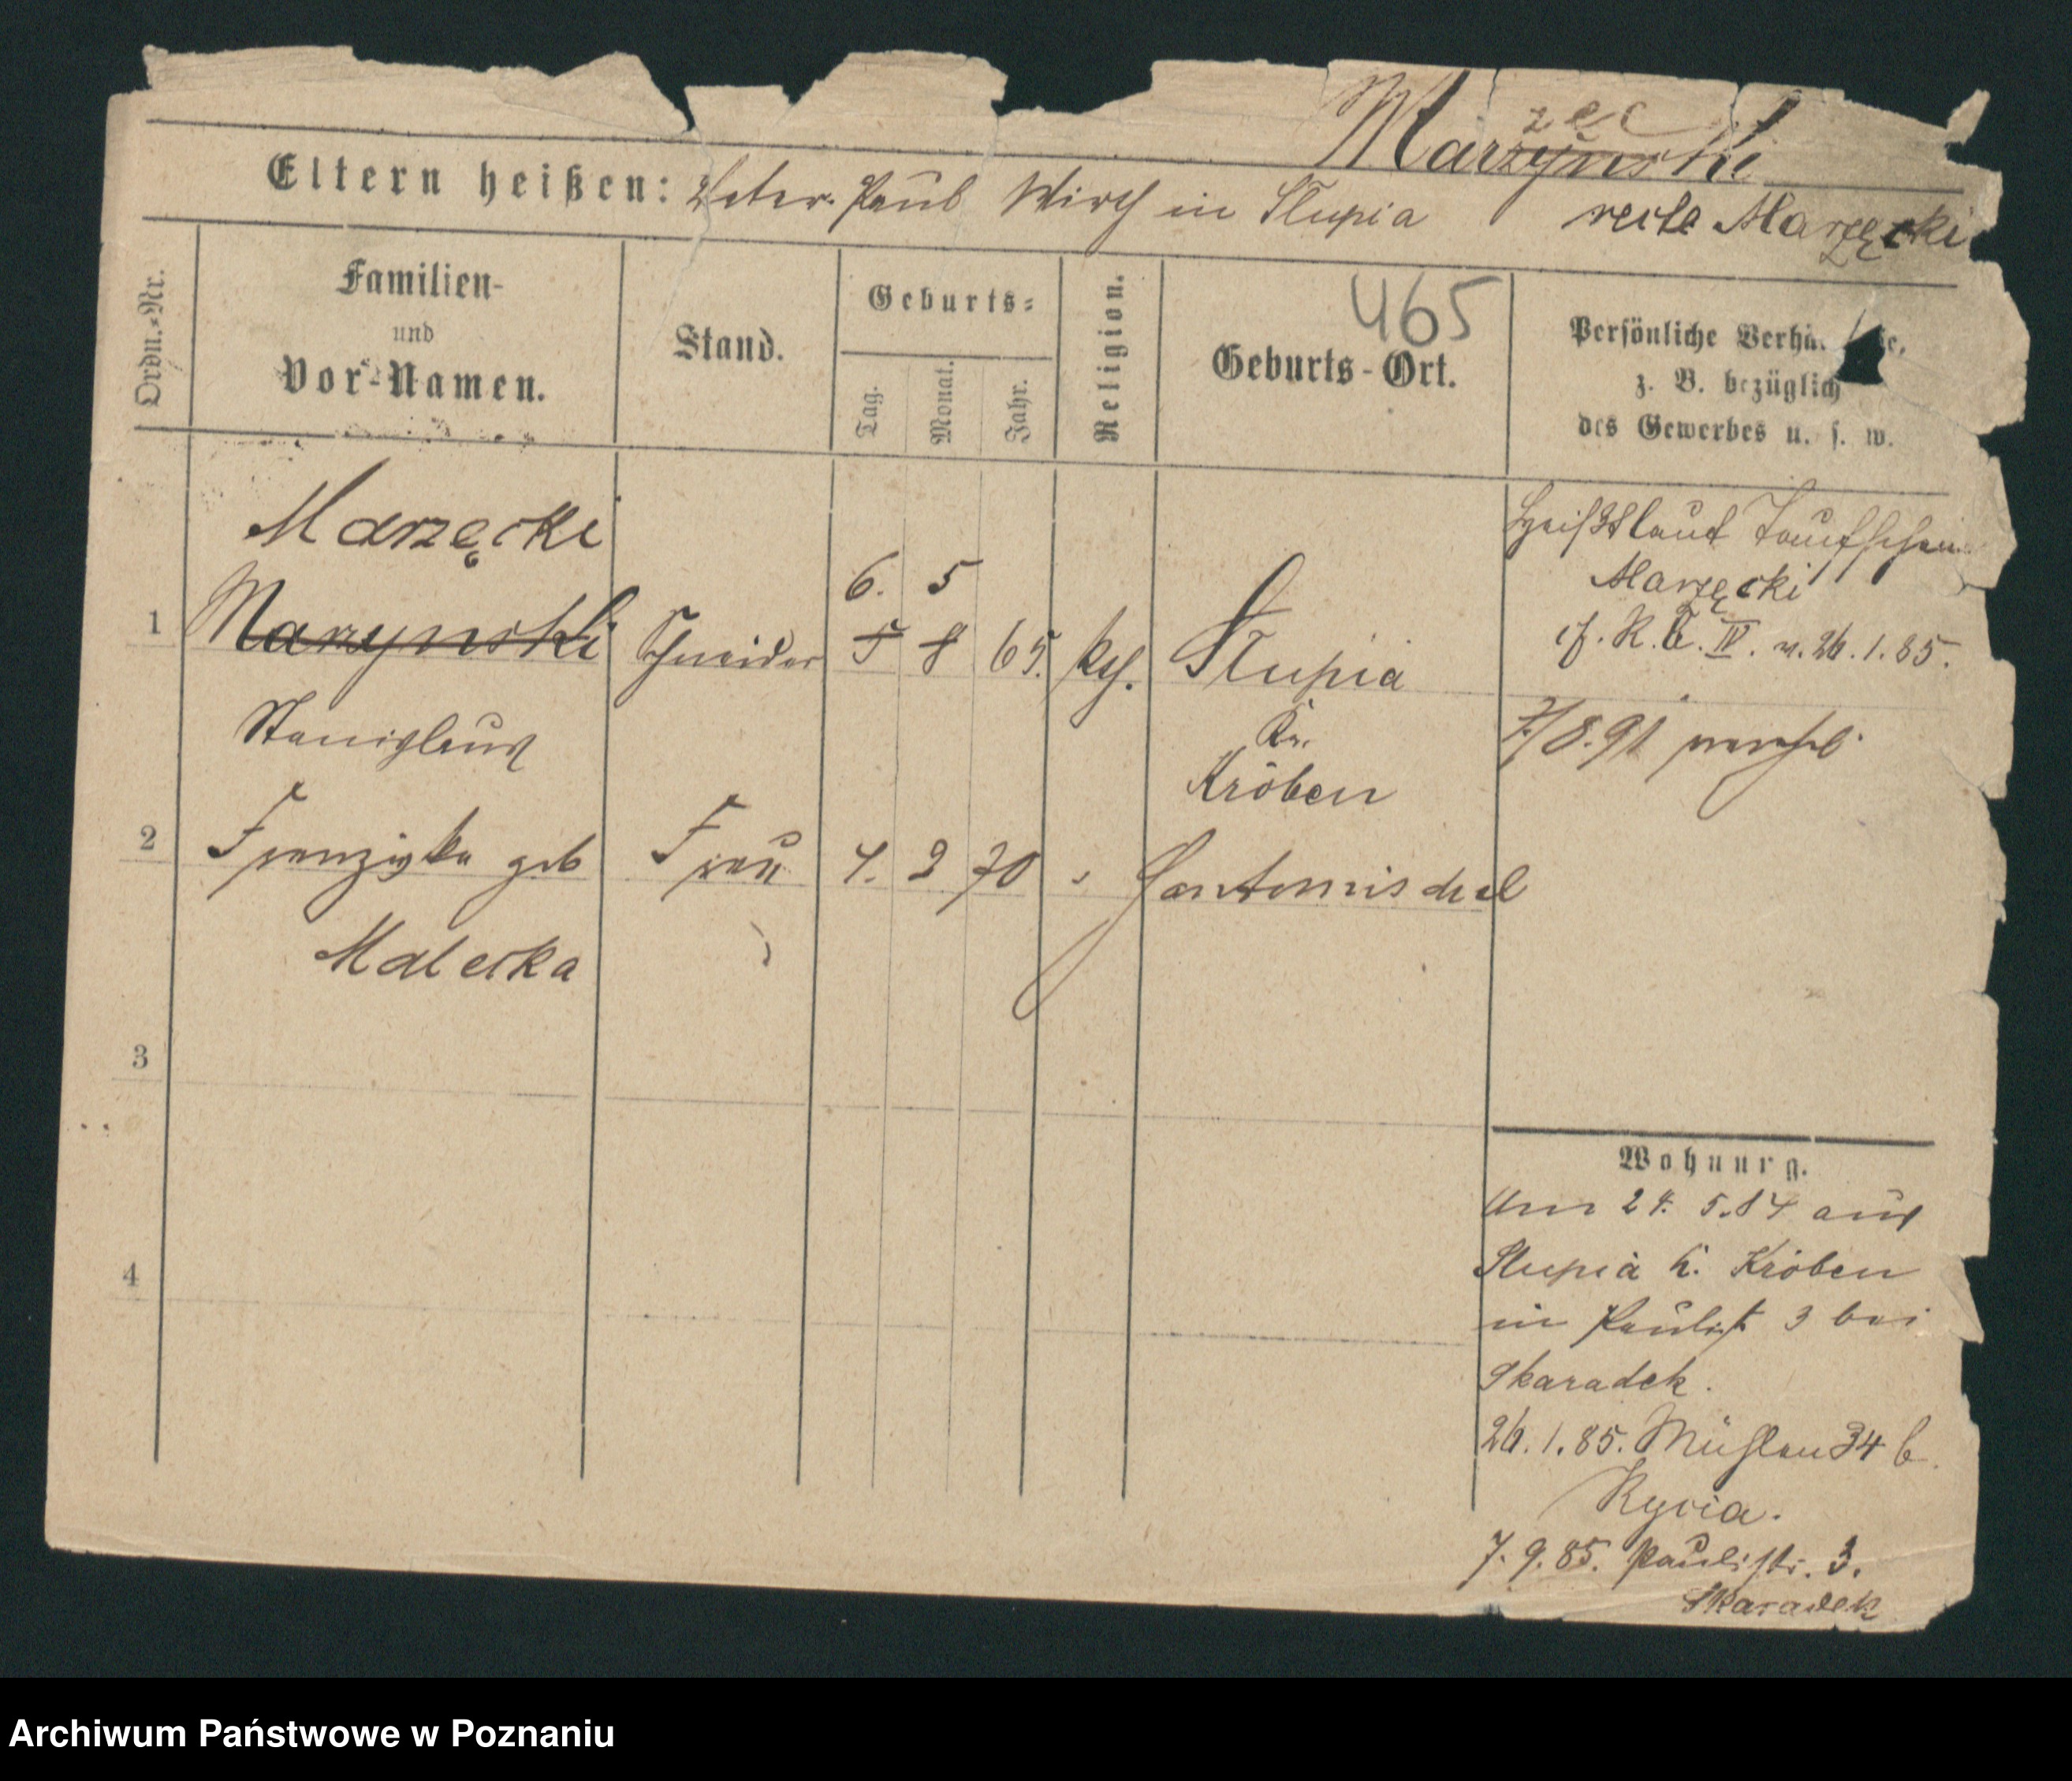 Marzynski
zec
Eltern heißen: Vater Paul Wirth in Słupia recte Marzęcki
465
Ordn.-Nr.
Familien-
und
Vor-Namen.
Stand.
Geburts-
Tag.
Monat.
Jahr.
Religion.
Geburts-Ort.
Persönliche
z. B. bezüglich
des Gewerbes u. s. w.
Marzęcki
6. 5
1 Marzynski Schneider 5 8 65. kth. Słupia
Stanislaus
Kr.
Kröben
Heißt laut Taufschein
Marzęcki
cf. R. IV. v. 26.1.85.
7/8.91
2 Franziska geb Frau 4. 2 70 " Santomischel
Malecka
3
4
Wohnung.
Am 24. 5.84 aus
Slupia K. Kröben
in Paulist 3 bei
Skaradek.
26.1.85. Mühlen 34 b.
Rycia.
7. 9. 85. Paulistr. 3.
Skaradek
Archiwum Państwowe w Poznaniu